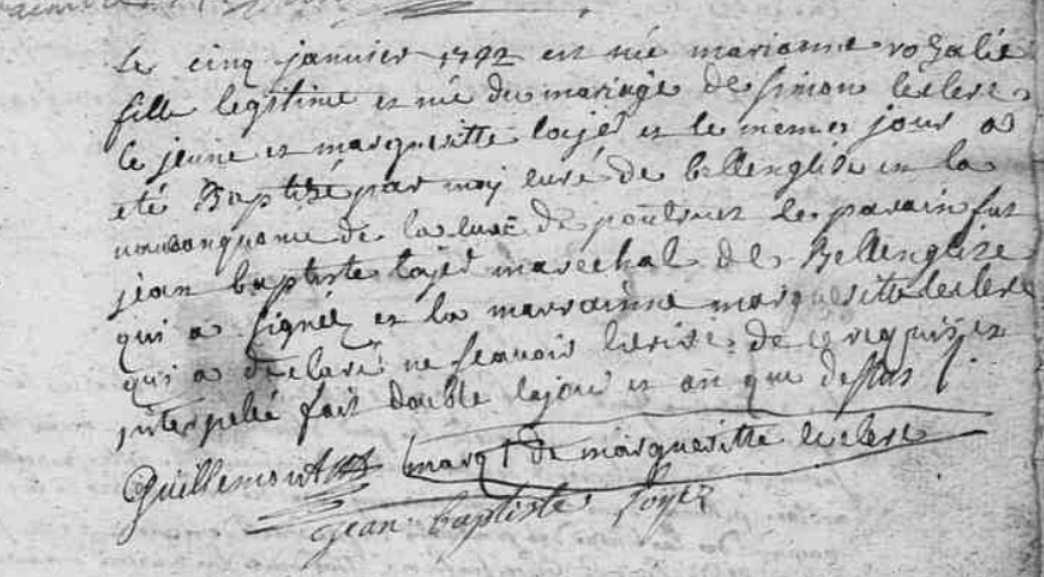 Le cinq janvier 1792 est née marianne rozalie
fille legitime et née du mariage de simon leclerc
le jeune et marguesitte loyez et le meme jour a
eté Baptisé par moy curé de bellenglise en la
de la cure de pontruet le parain fut
jean baptiste loyez marechal de Bellenglise
qui a signé et la marrainne marguesitte leclerc
qui a declaré ne scavoir lecrire de ce requise et
interpellé fait double lejour et an que dessus
Guillemont marq † de marguesitte leclerc
jean baptiste loyez